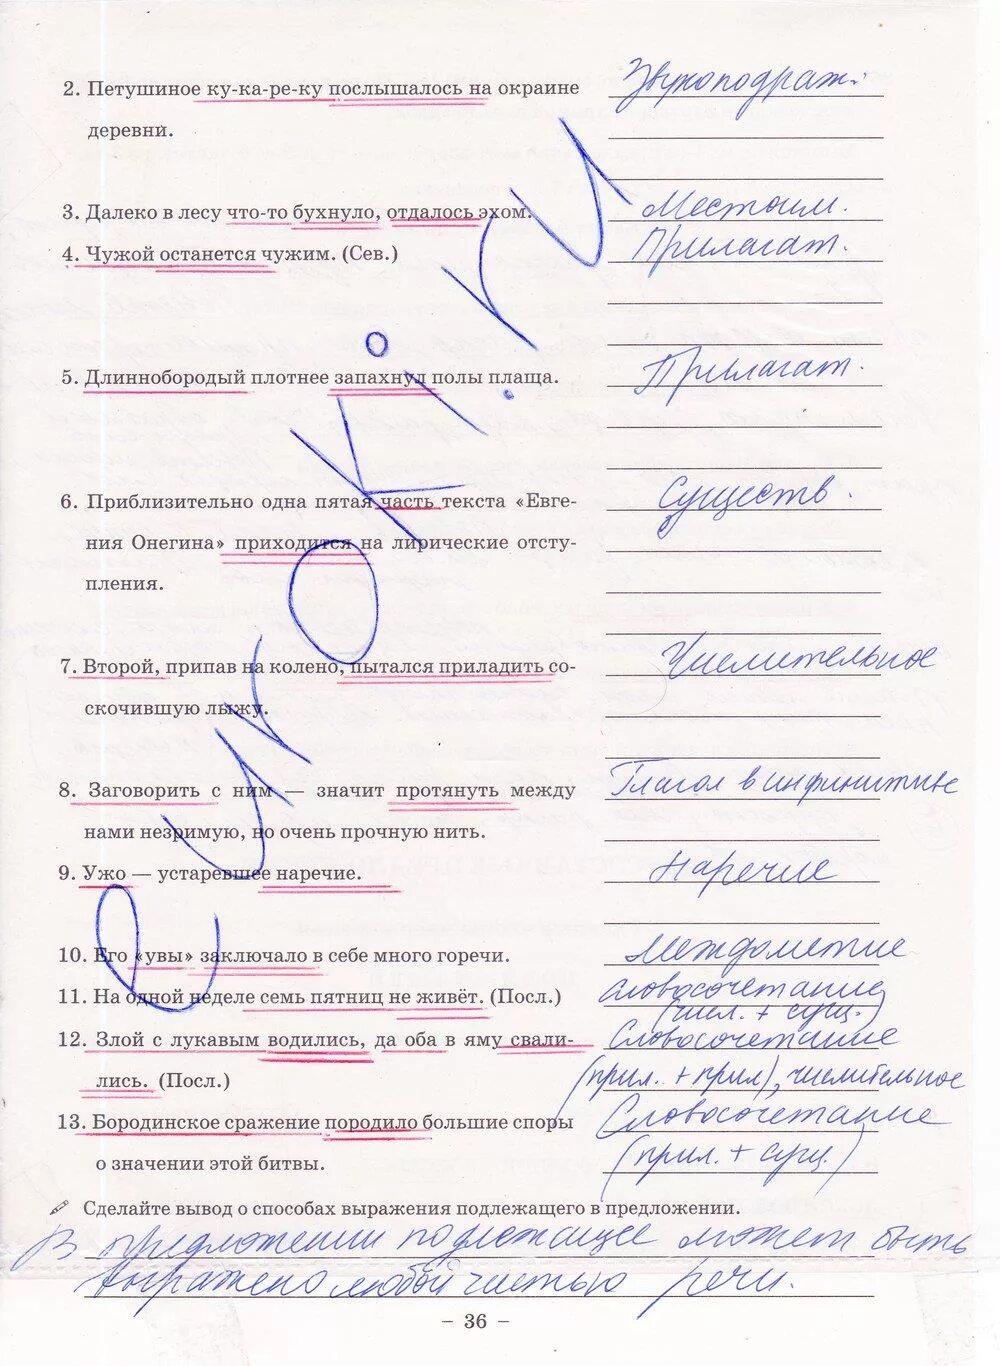 2. Петушиное ку-ка-ре-ку послышалось на окраине Звукоподраж.
деревни.
3. Далеко в лесу что-то бухнуло, отдалось эхом. Местоим.
4. Чужой останется чужим. (Сев.) Прилагат.
5. Длиннобородый плотнее запахнул полы плаща. Прилагат.
6. Приблизительно одна пятая часть текста «Евге- Существ.
ния Онегина» приходится на лирические отсту-
пления.
7. Второй, припав на колено, пытался приладить со- Числительное
скочившую лыжу.
8. Заговорить с ним — значит протянуть между Глагол в инфинитиве
нами незримую, но очень прочную нить.
9. Ужо — устаревшее наречие. Наречие
10. Его «увы» заключало в себе много горечи. Междометие
11. На одной неделе семь пятниц не живёт. (Посл.) словосочетание
(числ. + сущ.)
12. Злой с лукавым водились, да оба в яму свали- Словосочетание
лись. (Посл.) (прил. + прил), числительное
13. Бородинское сражение породило большие споры Словосочетание
о значении этой битвы. (прил. + сущ.)
Сделайте вывод о способах выражения подлежащего в предложении.
В предложении подлежащее может быть
выражено любой частью речи.
– 36 –
euroki.ru